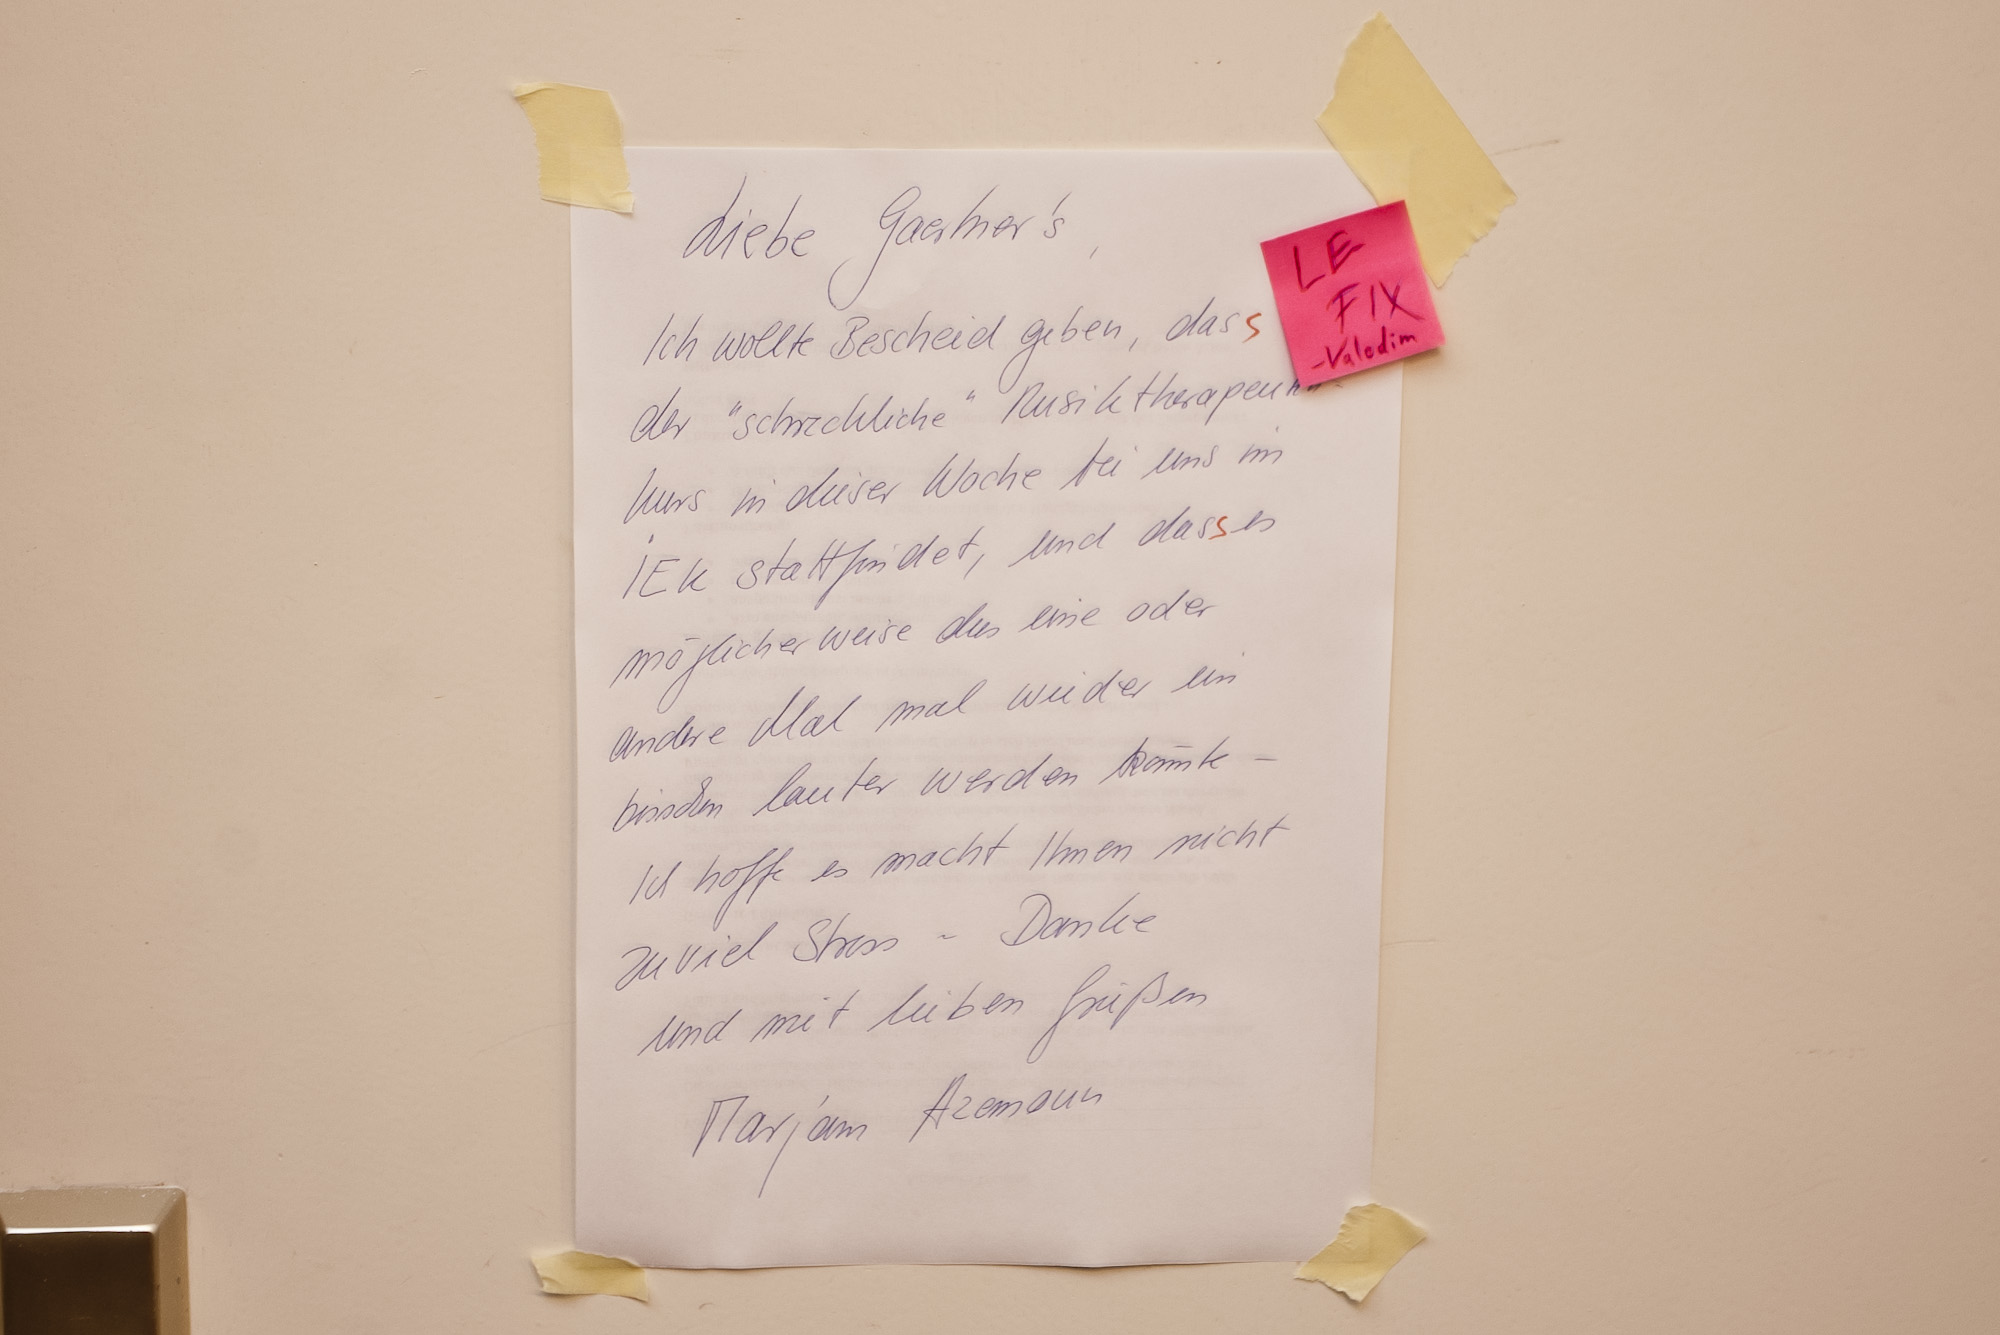 Liebe Gaertner's,
Ich wollte Bescheid geben, dass
der "schreckliche" Musiktherapeuten-
kurs in dieser Woche bei uns im
IEK stattfindet, und dass es
möglicherweise das eine oder
andere Mal mal wieder ein
bisschen lauter werden könnte –
Ich hoffe es macht Ihnen nicht
zuviel Stress – Danke
und mit lieben Grüßen
Marjam Azemoun
LE
FIX
-Valodim